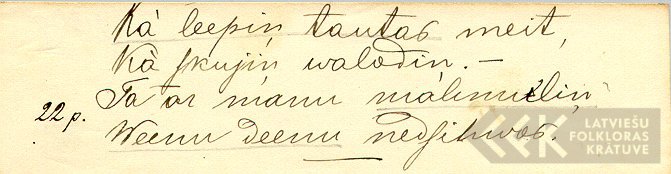 Kà leepiņ tautas meit,
Kà skujiņ walodiņ. —
22 p. Ta ar manu màhmuliņ
Weenu deenu nedsihwos.
LATVIEŠU
FOLKLORAS
KRĀTUVE